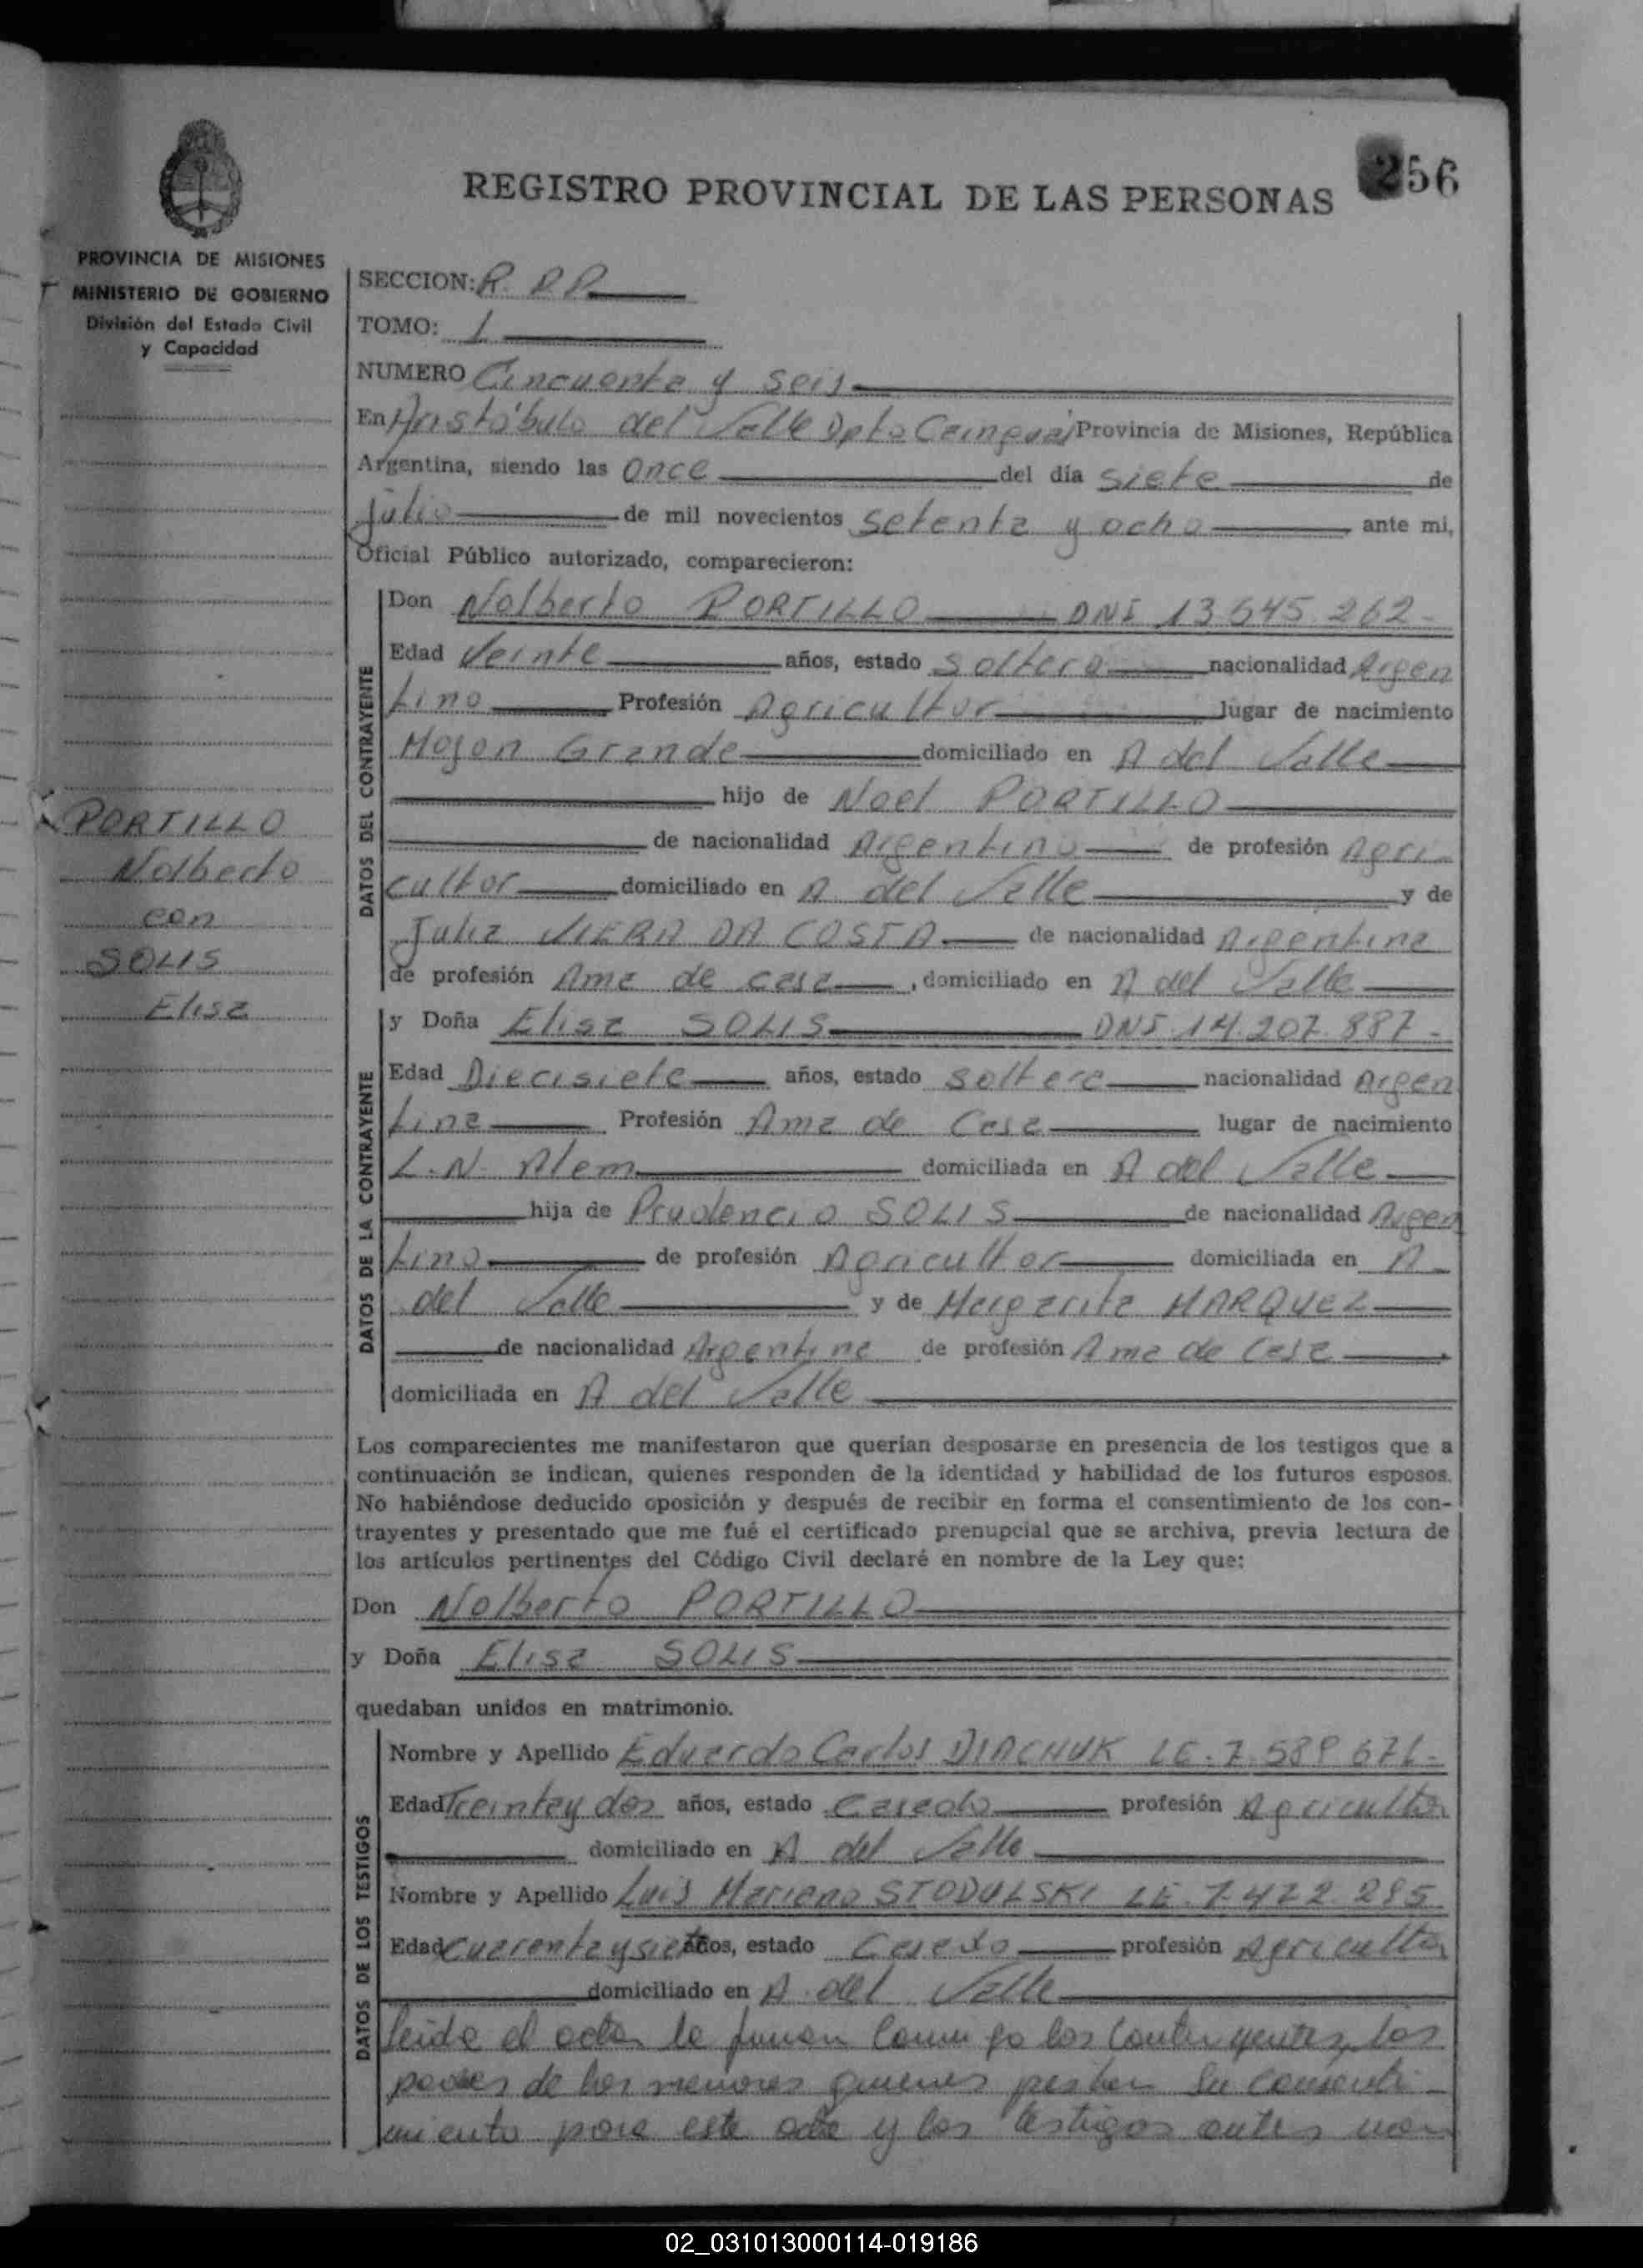 256
REGISTRO PROVINCIAL DE LAS PERSONAS
PROVINCIA DE MISIONES
MINISTERIO DE GOBIERNO
División del Estado Civil
y Capacidad
SECCION: R. P. P.
TOMO: 1
NUMERO Cincuenta y seis
En Aristóbulo del Valle Dpto Cainguás Provincia de Misiones, República
Argentina, siendo las once del día siete de
julio de mil novecientos setenta y ocho ante mi,
Oficial Público autorizado, comparecieron:
DATOS DEL CONTRAYENTE
Don Nolberto PORTILLO DNI 13.645.262-
Edad Veinte años, estado soltero nacionalidad Argen
tino Profesión Agricultor lugar de nacimiento
Mojon Grande domiciliado en A del Valle
hijo de Noel PORTILLO
de nacionalidad Argentino de profesión Agri-
cultor domiciliado en A del Valle y de
Julia VIERA DA COSTA de nacionalidad Argentina
de profesión Ama de casa, domiciliado en A del Valle
PORTILLO
Nolberto
con
SOLIS
Elisa
DATOS DE LA CONTRAYENTE
y Doña Elisa SOLIS DNI 14.207.887-
Edad Diecisiete años, estado soltera nacionalidad Argen
tina Profesión Ama de Casa lugar de nacimiento
L.N. Alem domiciliada en A del Valle
hija de Prudencio SOLIS de nacionalidad Argen
tino de profesión Agricultor domiciliada en A
del Valle y de Margarita MARQUEZ
de nacionalidad Argentina de profesión Ama de Casa
domiciliada en A del Valle
Los comparecientes me manifestaron que querían desposarse en presencia de los testigos que a
continuación se indican, quienes responden de la identidad y habilidad de los futuros esposos.
No habiéndose deducido oposición y después de recibir en forma el consentimiento de los con-
trayentes y presentado que me fué el certificado prenupcial que se archiva, previa lectura de
los artículos pertinentes del Código Civil declaré en nombre de la Ley que:
Don Nolberto PORTILLO
y Doña Elisa SOLIS
quedaban unidos en matrimonio.
DATOS DE LOS TESTIGOS
Nombre y Apellido Eduardo Carlos DIACHUK LE. 7.589.671-
Edad Treinta y dos años, estado casado profesión Agricultor
domiciliado en A del Valle
Nombre y Apellido Luis Mariano STODULSKI LE. 7.472.295
Edad cuarenta y siete años, estado Casado profesión Agricultor
domiciliado en A. del Valle
leida el acta la firman conmigo los contrayentes, los
padres de los menores quienes prestan su consenti-
miento para este acto y los testigos antes nom
02_031013000114-019186